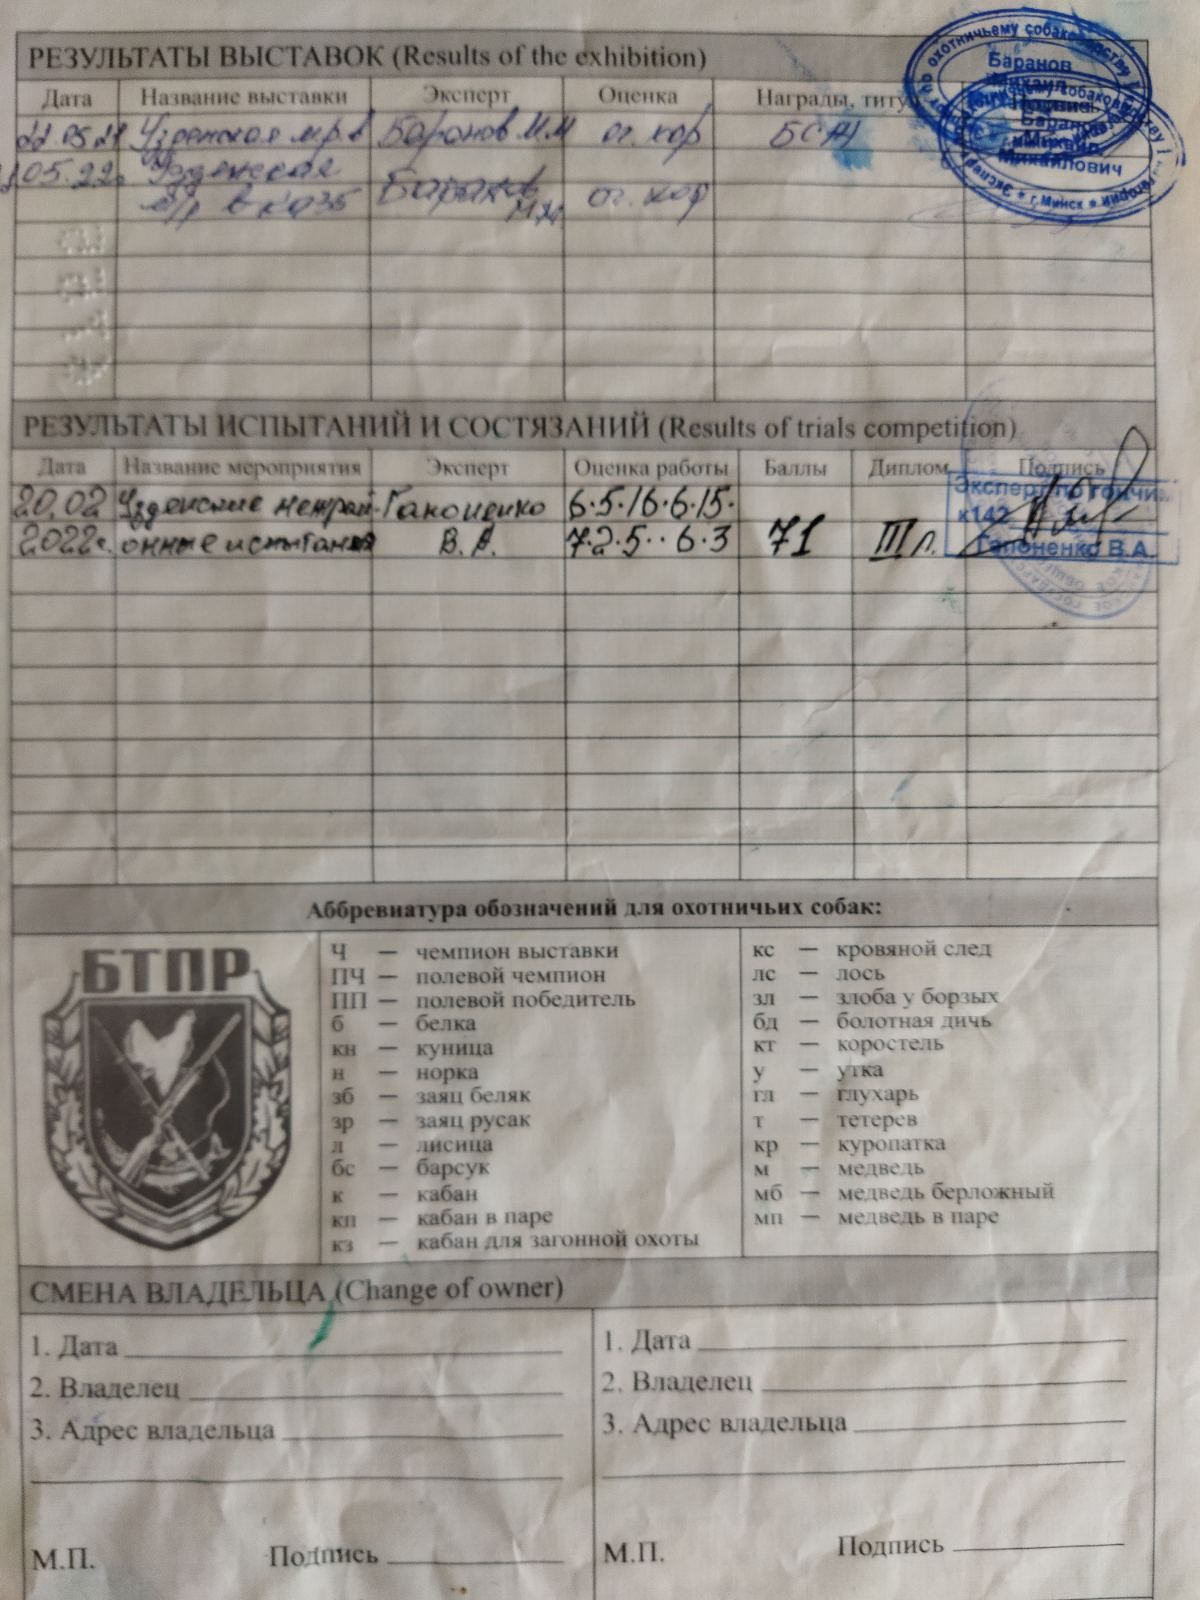 РЕЗУЛЬТАТЫ ВЫСТАВОК (Results of the exhibition)
Дата Название выставки Эксперт Оценка Награды, титул
22.05.21 Узденская Баранов М.М оч. хор
05.22г Узденская Баранов М.М. оч. хор
охотничьему собаководству
Баранов
Михаил
Михайлович
г. Минск
Эксперт
РЕЗУЛЬТАТЫ ИСПЫТАНИЙ И СОСТЯЗАНИЙ (Results of trials competition)
Дата Название мероприятия Эксперт Оценка работы Баллы Диплом Подпись
20.02 Узденские межрай- Гапоненко 6.5.16.6.15.
2022г. онные испытания В.А. 7.2.5.. 6.3 71 III
Эксперт по гончим
к142
Гапоненко В.А.
Аббревиатура обозначений для охотничьих собак:
БТПР
Ч — чемпион выставки
ПЧ — полевой чемпион
ПП — полевой победитель
б — белка
кн — куница
н — норка
зб — заяц беляк
зр — заяц русак
л — лисица
бс — барсук
к — кабан
кп — кабан в паре
кз — кабан для загонной охоты
кс — кровяной след
лс — лось
зл — злоба у борзых
бд — болотная дичь
кт — коростель
у — утка
гл — глухарь
т — тетерев
кр — куропатка
м — медведь
мб — медведь берложный
мп — медведь в паре
СМЕНА ВЛАДЕЛЬЦА (Change of owner)
1. Дата
2. Владелец
3. Адрес владельца
М.П. Подпись
1. Дата
2. Владелец
3. Адрес владельца
М.П. Подпись